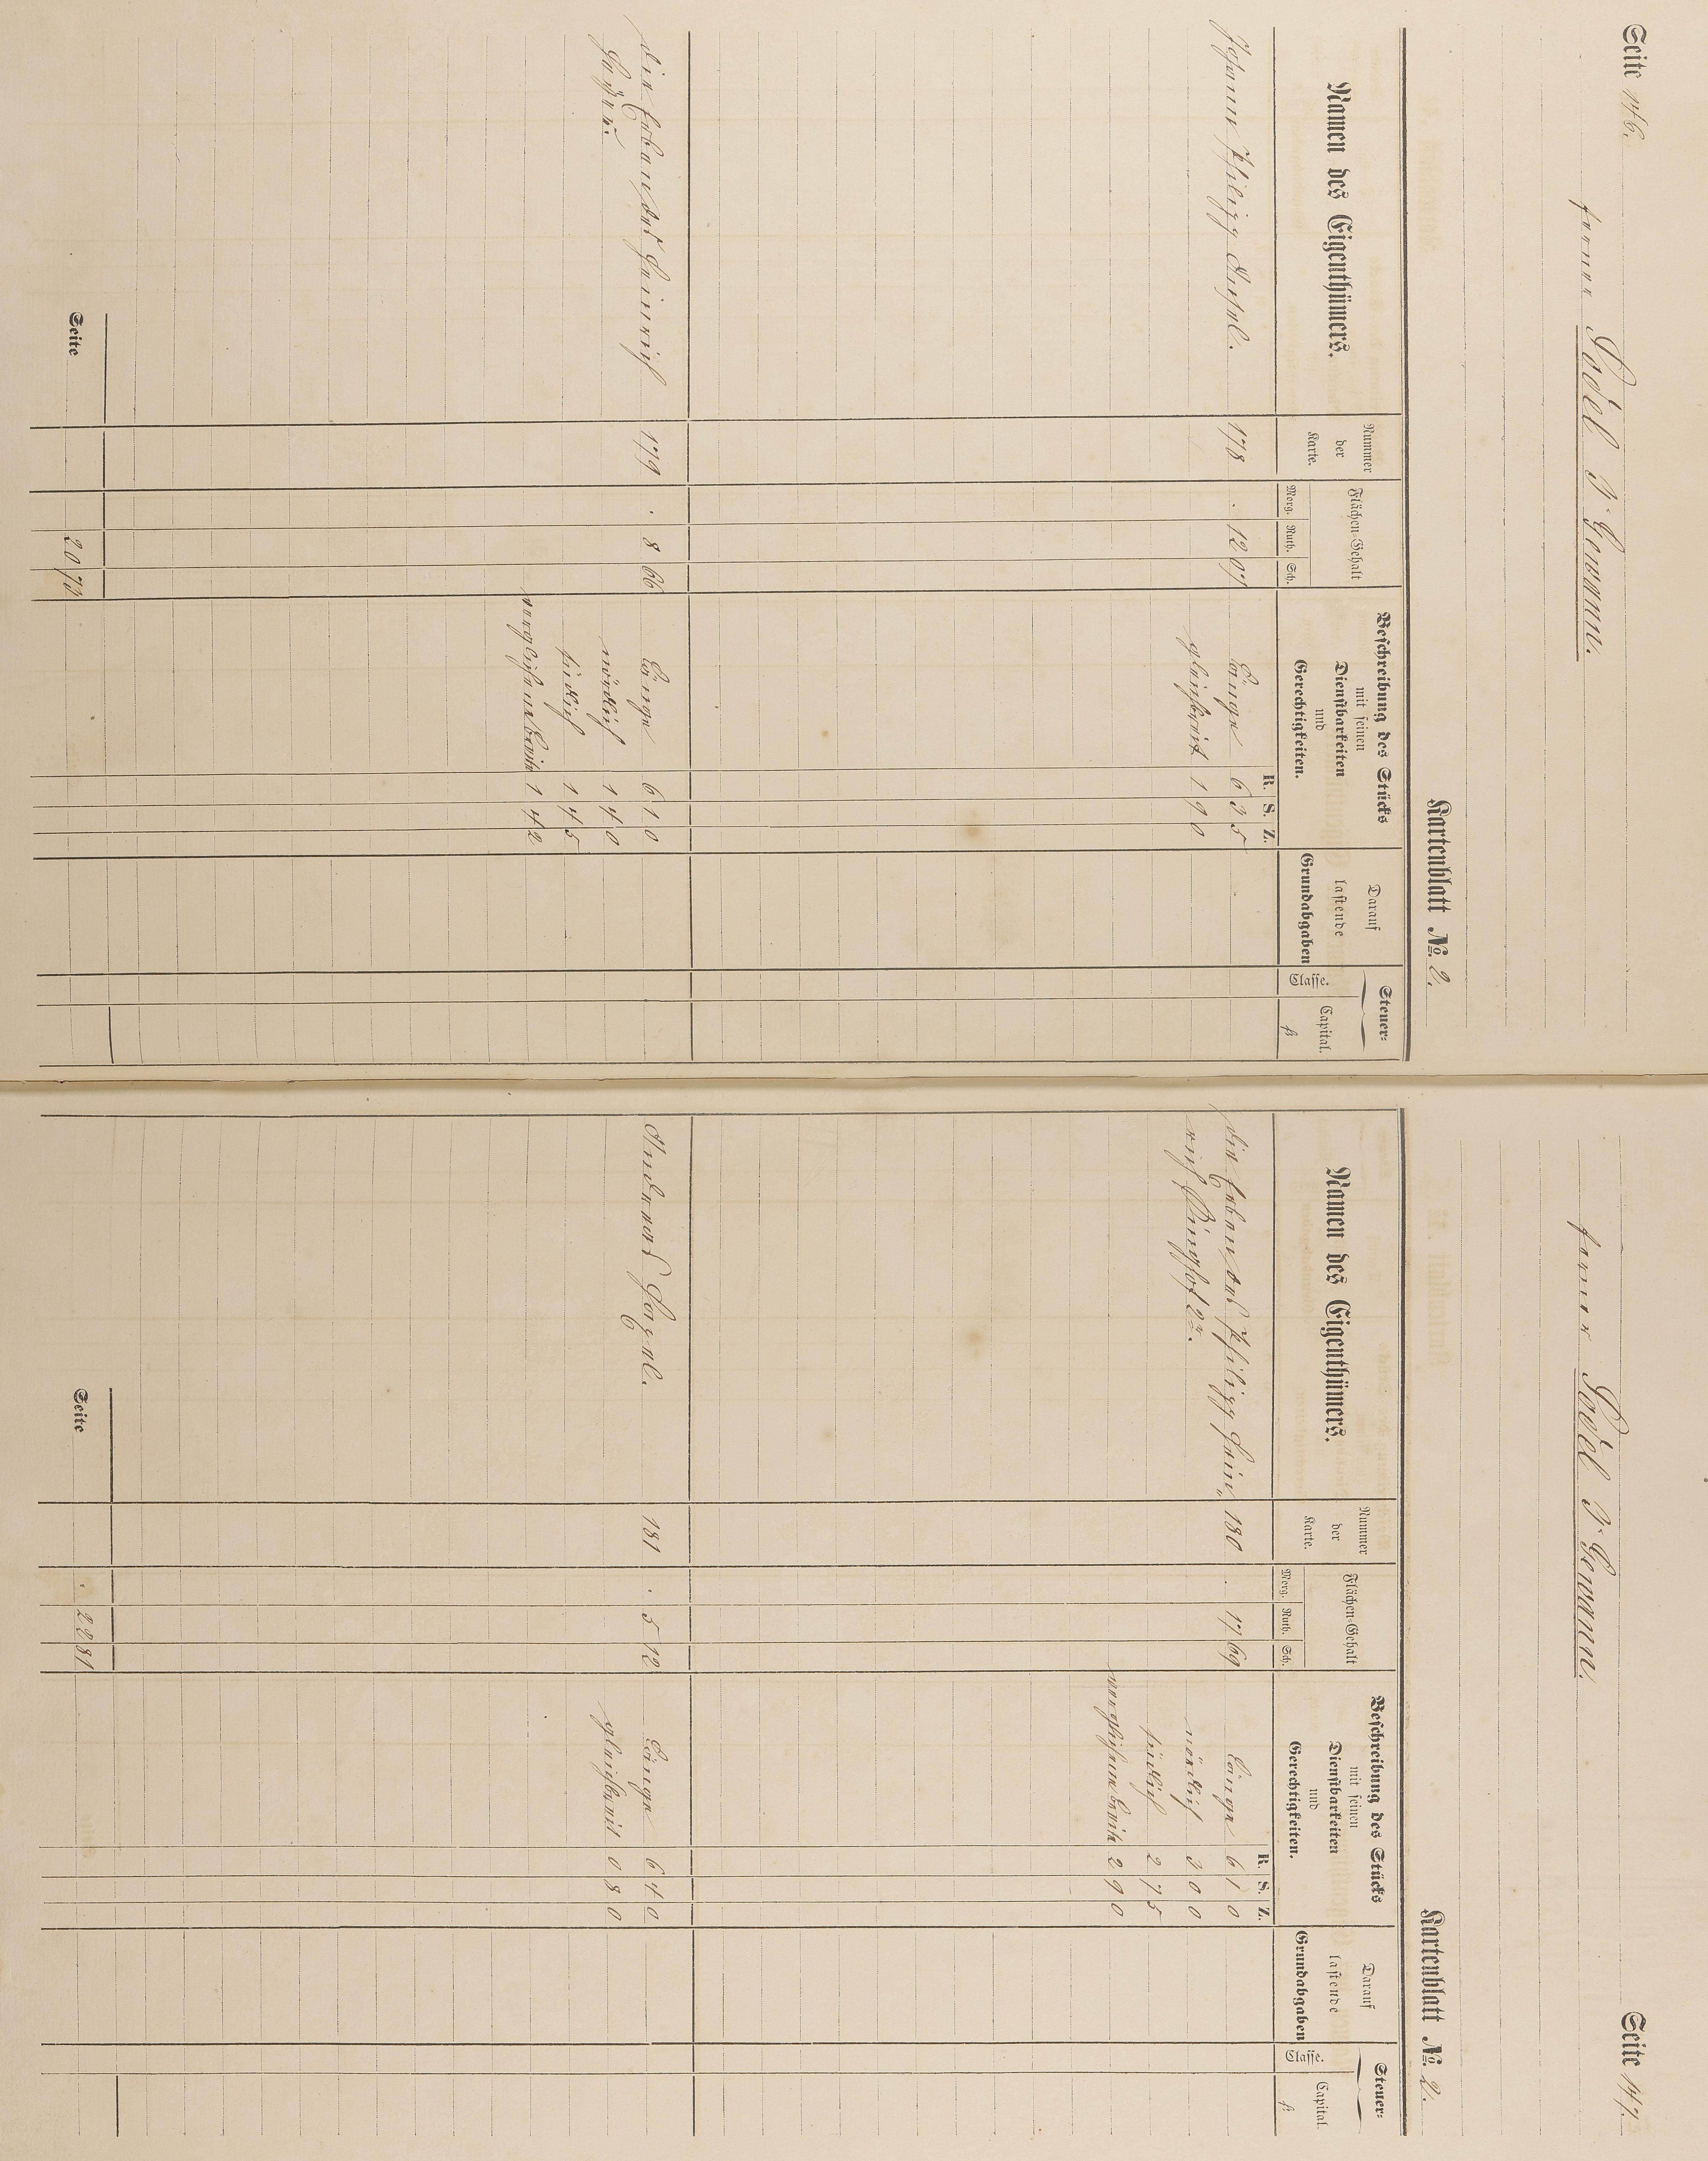 Seite 146.
ferner Södel 3. Gewann.
Kartenblatt No. 2.
Namen des Eigenthümers.
Nummer der Karte.
Flächen-Gehalt
Morg. Ruth. Sch.
Beschreibung des Stücks
mit seinen
Dienstbarkeiten
und
Gerechtigkeiten.
R. S. Z.
Darauf
lastende
Grundabgaben
Steuer-
Classe. Capital.
fl.
Johann Philipp 178 . 12 07 Länge 6 3 5
gleichbreit 1 9 0
die Erben des Heinrich 179 . 8 66 Länge 6 1 0
nördlich 1 4 0
südlich 1 4 5
verglichene Breite 1 4 2
Seite 20 73
Seite 147.
ferner Södel 3. Gewann.
Kartenblatt No. 2.
Namen des Eigenthümers.
Nummer der Karte.
Flächen-Gehalt
Morg. Ruth. Sch.
Beschreibung des Stücks
mit seinen
Dienstbarkeiten
und
Gerechtigkeiten.
R. S. Z.
Darauf
lastende
Grundabgaben
Steuer-
Classe. Capital.
fl.
die Erben des Philipp Hein- 180 . 17 69 Länge 6 1 0
rich 2r. nördlich 3 0 0
südlich 2 7 5
verglichene Breite 2 9 0
Andreas 181 . 5 12 Länge 6 4 0
gleichbreit 0 8 0
Seite . 22 81